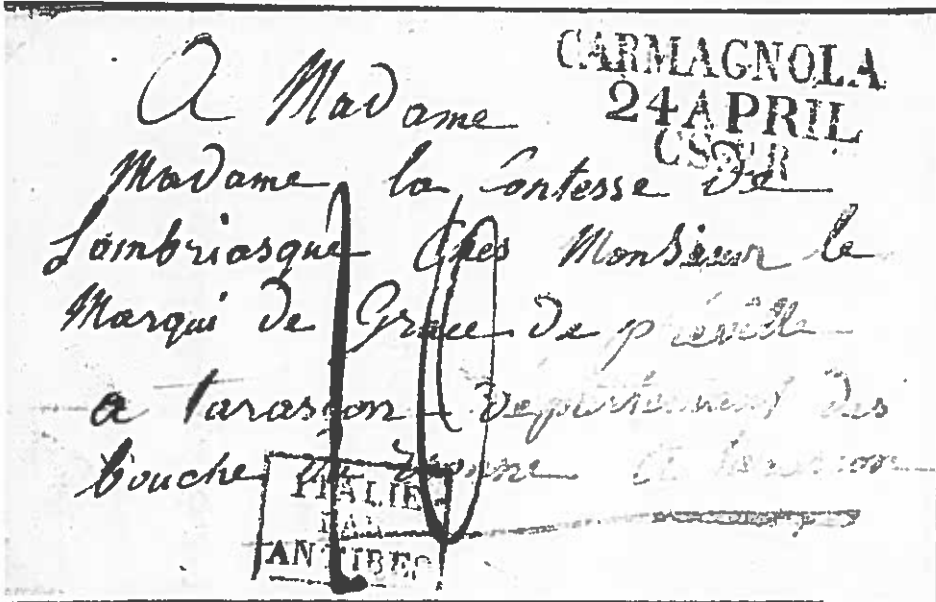 CARMAGNOLA
24 APRIL
A Madame
Madame la Contesse de
Lambriasque Ches Monsieur le
Marqui de Grace de préville
a tarascon departement des
bouche du Rhonne a
10
ITALIE
PAR
ANTIBES